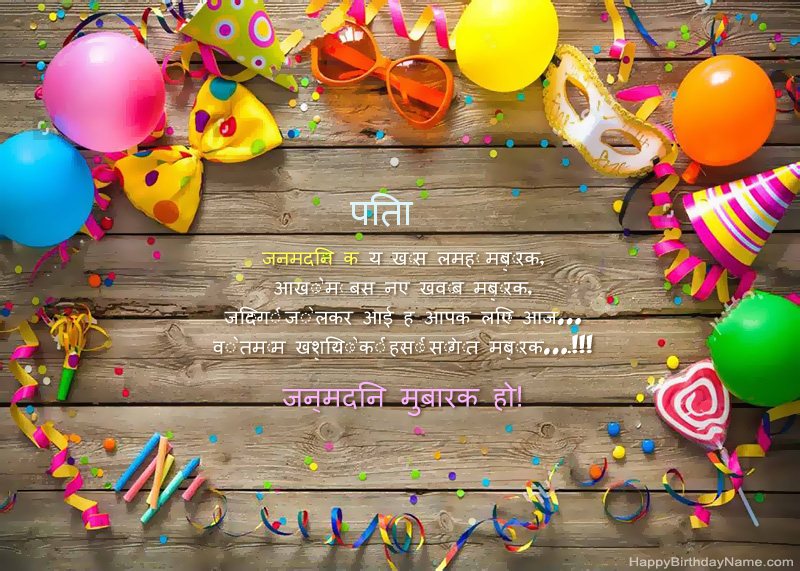 पिता
जनमदिन क य खास लमह मबारक,
आखो म बस नए खवाब मबारक,
जिदगी जो लेकर आई ह आपक लिए आज...
वो तमाम खशियो की हसी सोगात मबारक....!!!
जन्मदिन मुबारक हो!
HappyBirthdayName.com